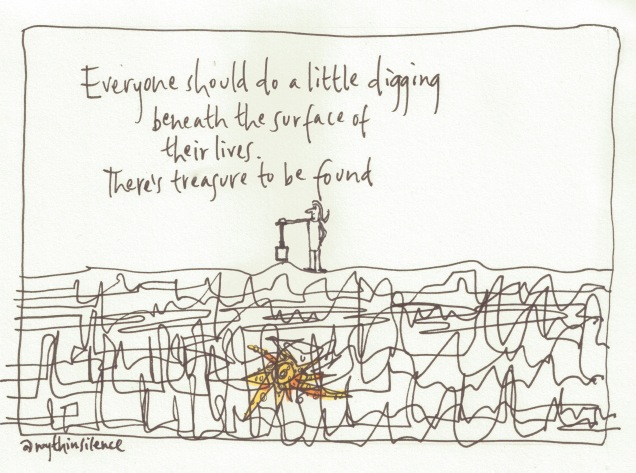 Everyone should do a little digging
beneath the surface of
their lives.
There's treasure to be found
@mythinsilence